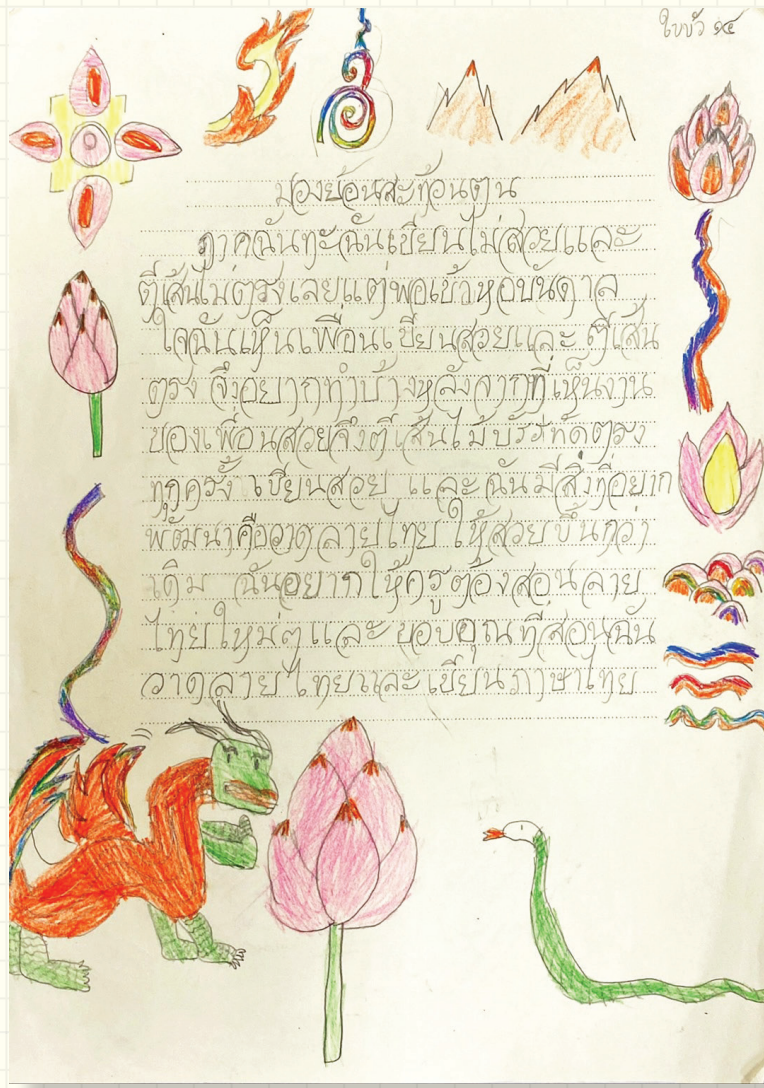 ใบบัว ๑๔
มองย้อนสะท้อนตน
ภาคฉันทะฉันเขียนไม่สวยและ
ตีเส้นไม่ตรงเลยแต่พอเข้าหอบันดาล
ใจฉันเห็นเพื่อนเขียนสวยและ ตีเส้น
ตรง จึงอยากทำบ้างหลังจากที่เห็นงาน
ของเพื่อนสวยจึงตีเส้นไม้บรรทัดตรง
ทุกครั้ง เขียนสวย และฉันมีสิ่งที่อยาก
พัฒนาคือวาดลายไทย ให้สวยขึ้นกว่า
เดิม ฉันอยากให้ครูต้องสอนลาย
ไทยใหม่ๆและ ขอบคุณ ที่สอนฉัน
วาดลายไทยและเขียนภาษาไทย